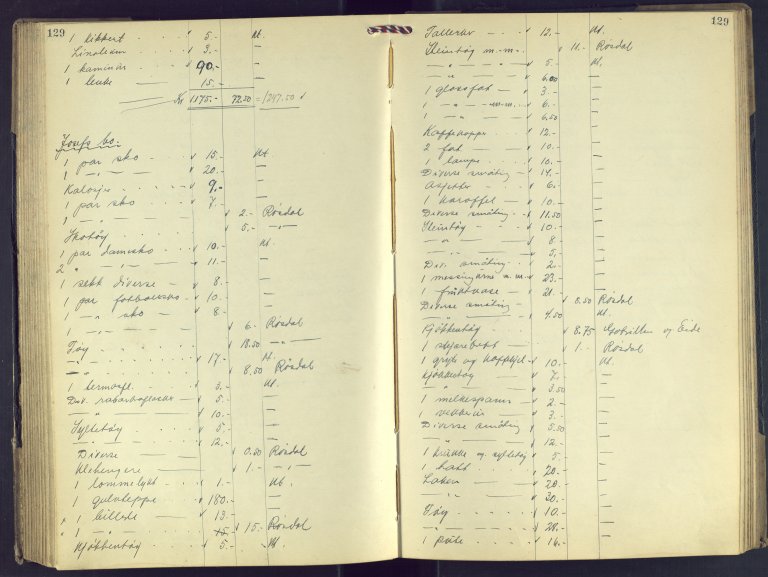 129
1 kikkert " 5.- Ut.
Linoleum " 3.- —
1 kaminur 90.- —
1 benke 15.- —
Kr 1175.- 72.50 = 1247.50
Josefs bo.
1 par sko 15.- Ut.
1 — " — 20.- —
Kalosjer 9.- —
1 par sko 7.- —
1 " 2.- Rösdal
5.- — " —
Skotöy
1 par damesko 10.- Ut.
2 " 11.- —
1 sekk diverse 8.- —
1 par fotballsko 10.- —
1 — " — sko 8.- —
1 — " — 6.- Rösdal
Töy 18.50 — " —
— " — 17.- Ut.
— " — 8.50 Rösdal
1 termosfl. 3.- Ut.
Div. rabarbraflasker 5.- —
— " — 10.- —
Syltetöy 5.- —
— " — 12.- —
Diverse 0.50 Rösdal
Klehengere 1.- — " —
1 lommelykt 1.- Ut.
1 gulvteppe 180.- —
1 billede 13.- —
1 — " — 15.- 15.- Rösdal
Kjökkentöy 5.- Ut
129
Tallerker 12.- Ut.
Steintöy m.m. 11.- Rösdal
— " — 5.- Ut.
— " — 6.00 —
1 glassfat 3.- —
1 — " — m.m. 6.- —
1 — " — 6.50 —
Kaffekopper 12.- —
2 fat 10.- —
1 lampe 10.- —
Diverse småting 14.- —
Asjetter 6.- —
1 karaffel 10.- —
Diverse småting 11.50 —
Steintöy 10.- —
— " — 8.- —
— " — 5.- —
Div. småting 2.- —
1 messingarne m.m. 23.- —
1 fruktvase 21.- —
Diverse småting 0.50 Rösdal
— " — 4.50 Ut.
Kjökkentöy 8.75 og Eide
1 skjærebrett 1.- Rösdal
1 gryte og kaffekjel 10.- Ut.
Kjökkentöy 7.- —
— " — 3.50 —
1 melkespann 2.- —
1 vekkerur 3.- —
Diverse småting 5.50 —
— " — 12.- —
1 krukke og syltetöy 5.- —
1 hatt 20.- —
Laken 28.- —
— " — 30.- —
Töy 10.- —
— " — 28.- —
1 pute 16.- —